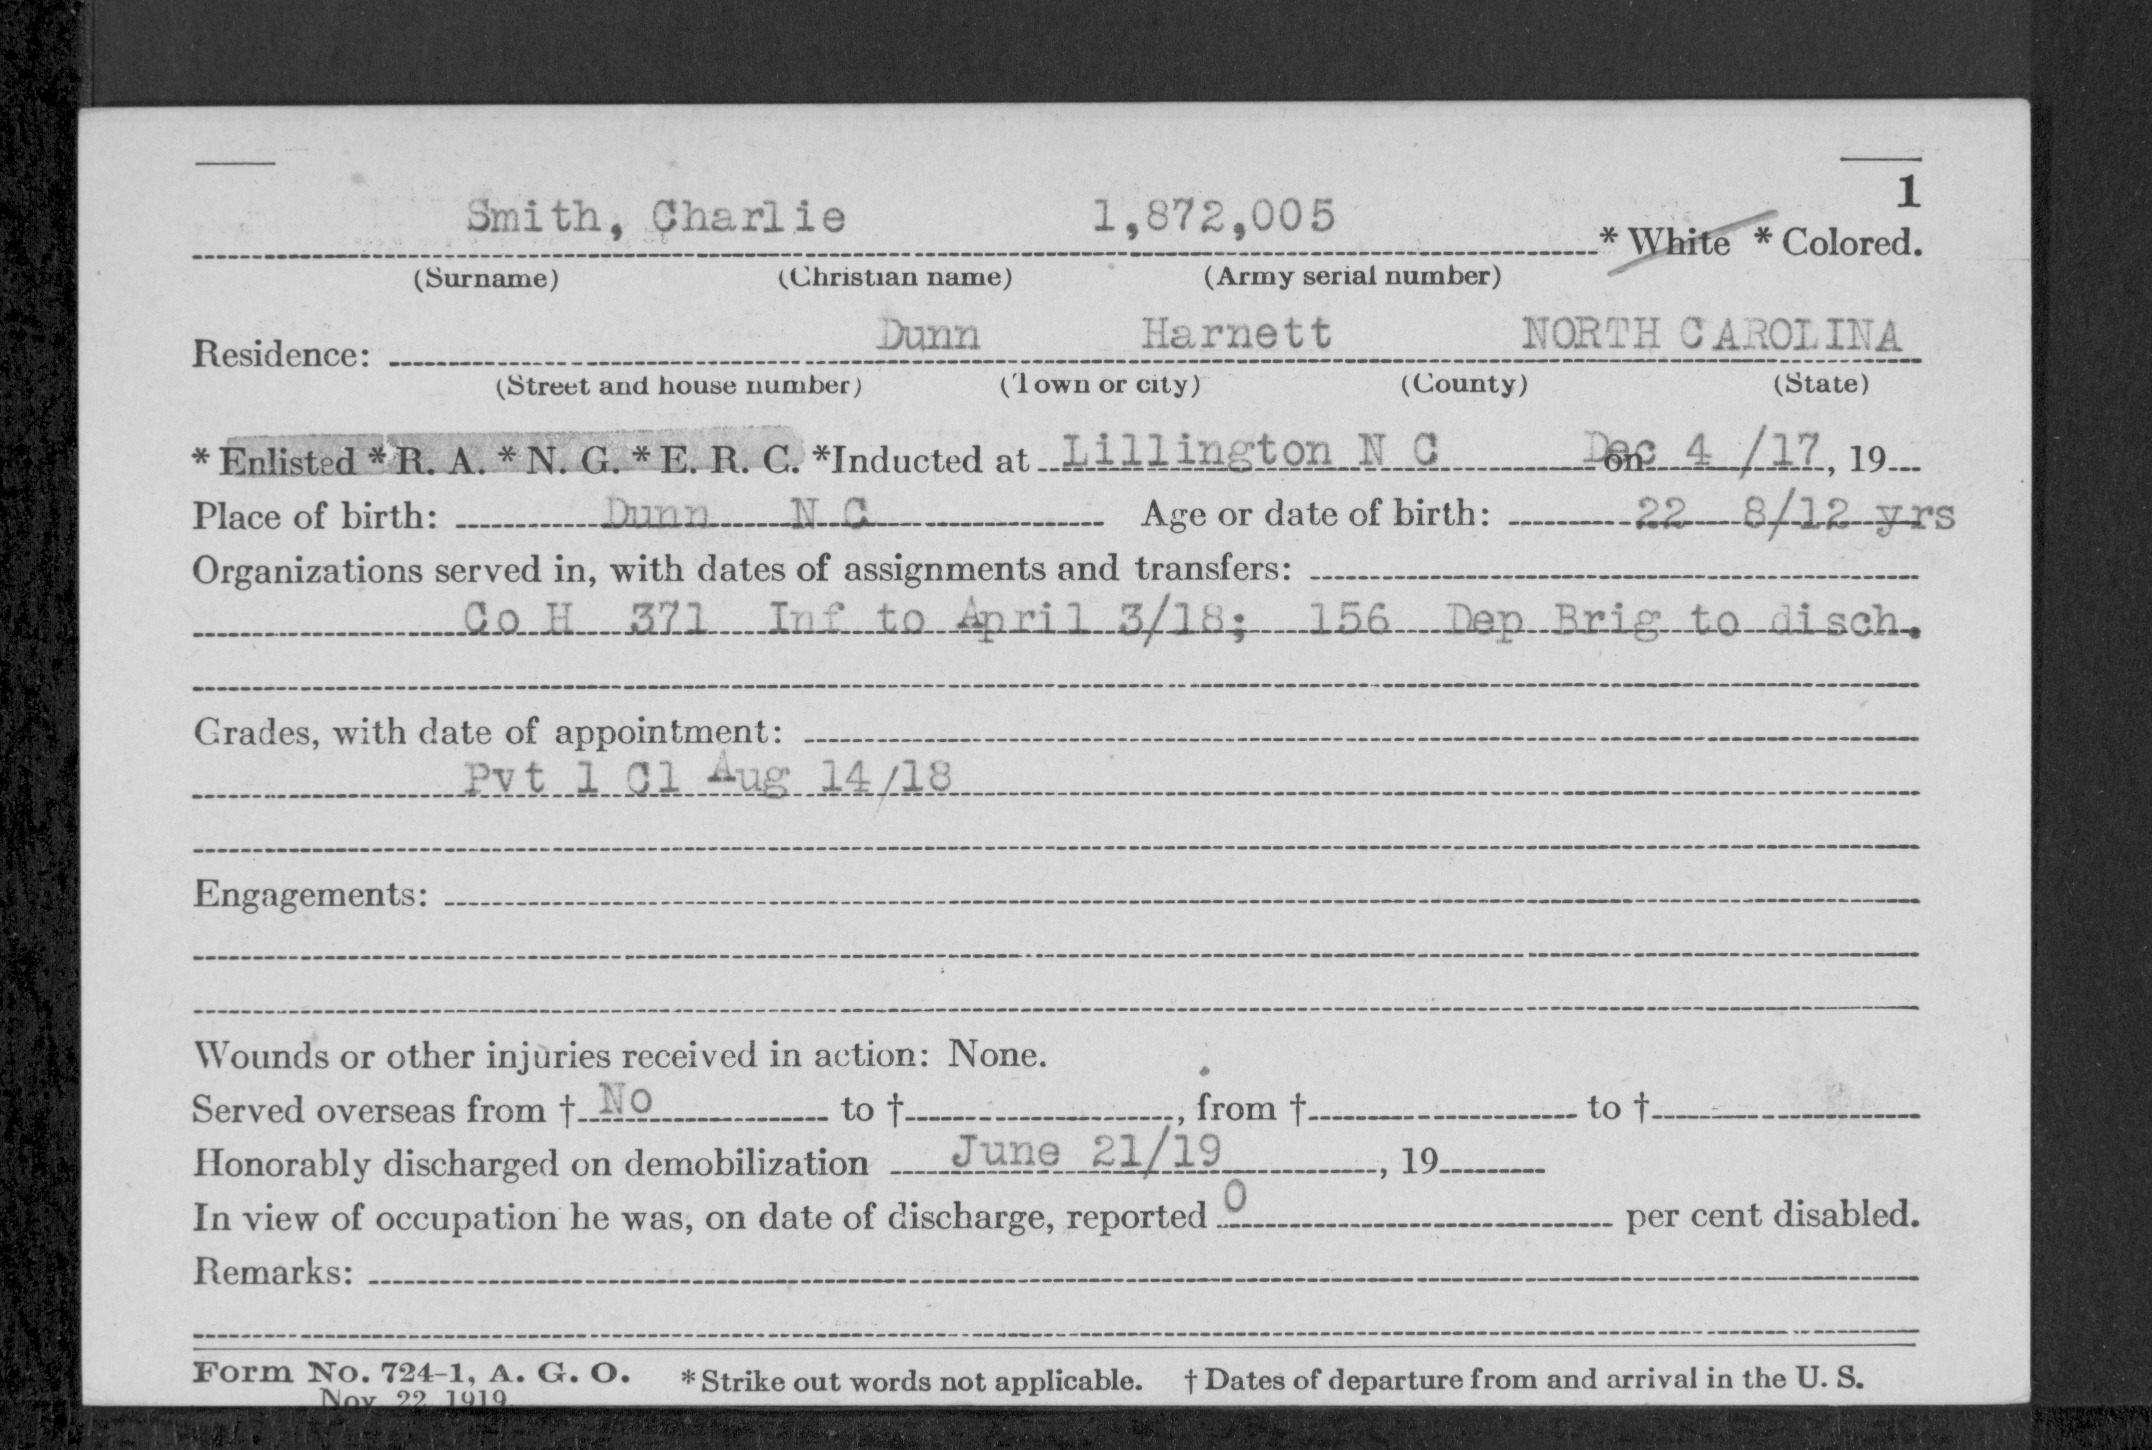 1
Smith, Charlie 1,872,005 * White * Colored.
(Surname) (Christian name) (Army serial number)
Residence: Dunn Harnett NORTH CAROLINA
(Street and house number) (Town or city) (County) (State)
* Enlisted * R. A. * N. G. * E. R. C. *Inducted at Lillington N C on Dec 4 /17, 19
Place of birth: Dunn N C Age or date of birth: 22 8/12 yrs
Organizations served in, with dates of assignments and transfers:
Co H 371 Inf to April 3/18; 156 Dep Brig to disch.
Grades, with date of appointment:
Pvt 1 Cl Aug 14/18
Engagements:
Wounds or other injuries received in action: None.
Served overseas from † No to †, from † to †
Honorably discharged on demobilization June 21/19, 19
In view of occupation he was, on date of discharge, reported 0 per cent disabled.
Remarks:
Form No. 724-1, A. G. O. * Strike out words not applicable. † Dates of departure from and arrival in the U. S.
Nov. 22, 1919